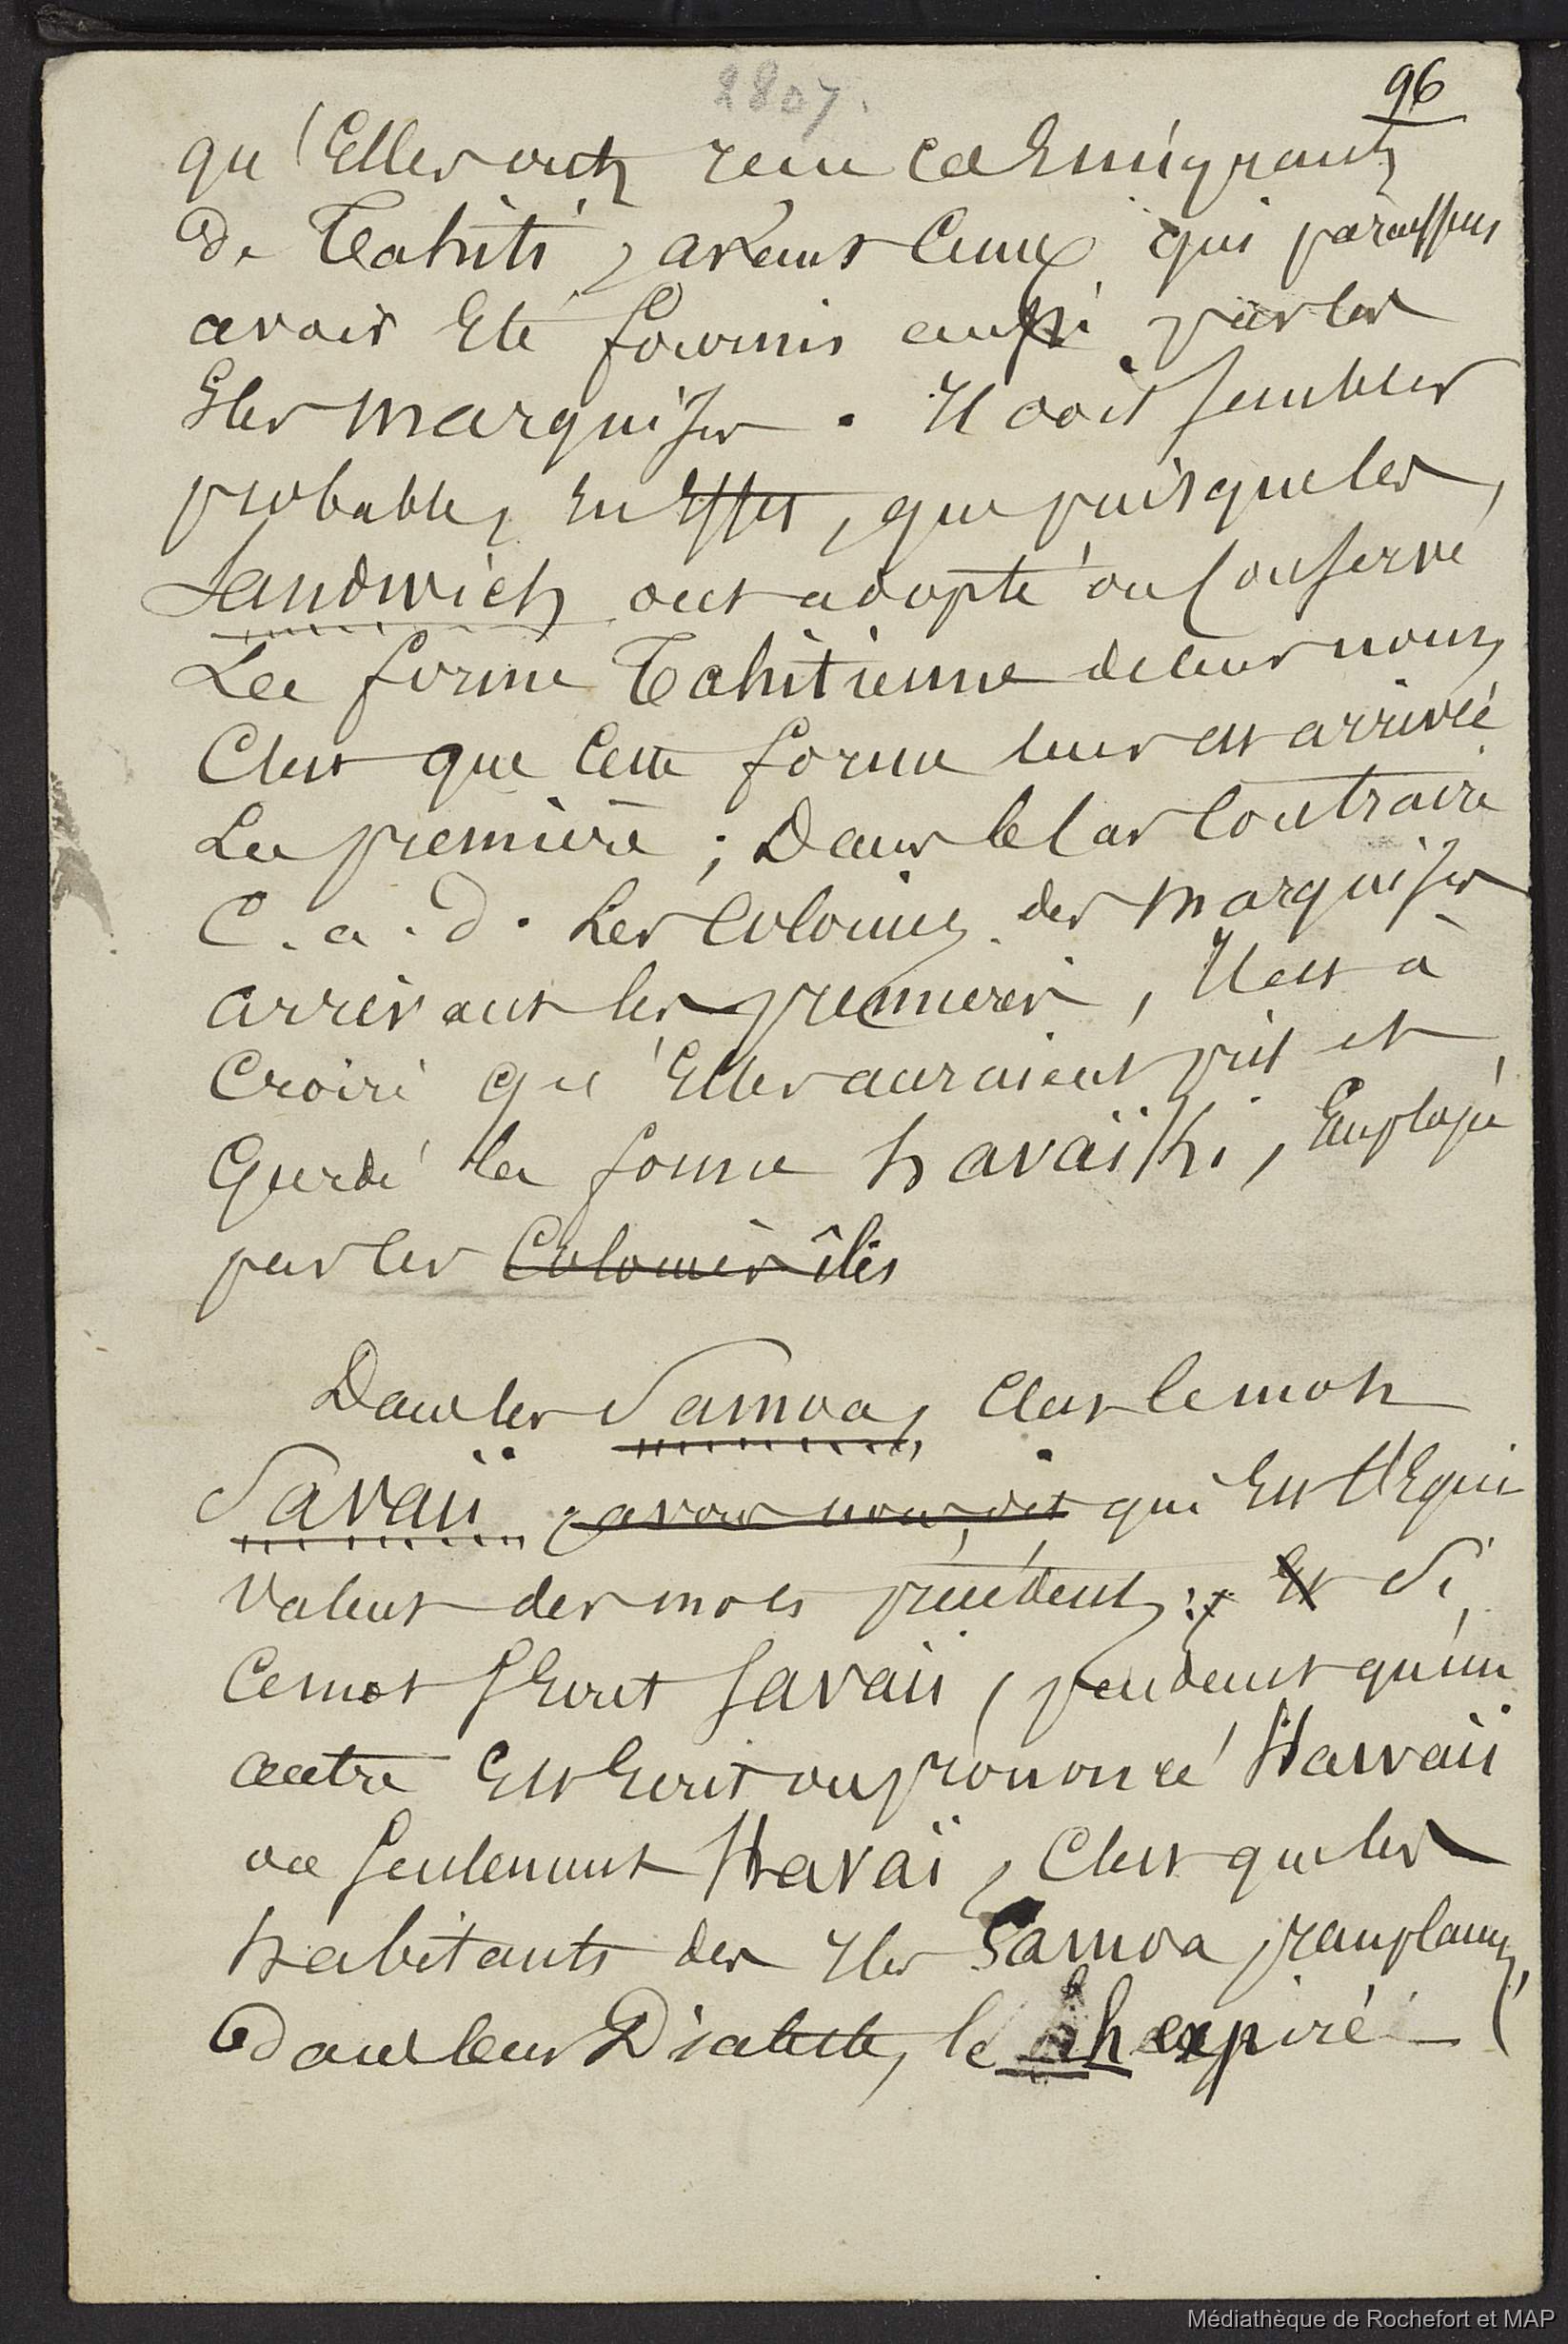 2807.
96
qu'Elles ont reçu ces Emigrants
de Tahiti, avant ceux qui paraissent
avoir Eté fournis aussi par les
Iles marquises. Il doit sembler
probable, En Effet, que puisque les
Sandwich ont adopté ou Conservé
La forme Tahitienne de leur nom,
C'est que Cette forme leur est arrivée
La première ; Dans le Cas Contraire
C. a. d. Les Colonies des marquises
arrivant les premières, Il est à
Croire qu'Elles auraient pris et
Gardé la forme havaïki, Employée
par les Colonies îles
Dans les Samoa, C'est le mot
Savaii, avons nous dit qui Est l'Equi
valent des mots précédents ; Et Si
Ce mot S'Ecrit Savaii, pendant qu'un
autre Est Ecrit ou prononcé Havaii
ou Seulement Havaï, C'est que les
habitants des Iles Samoa remplacent,
Dans leur Dialecte, le h expiré
Médiathèque de Rochefort et MAP